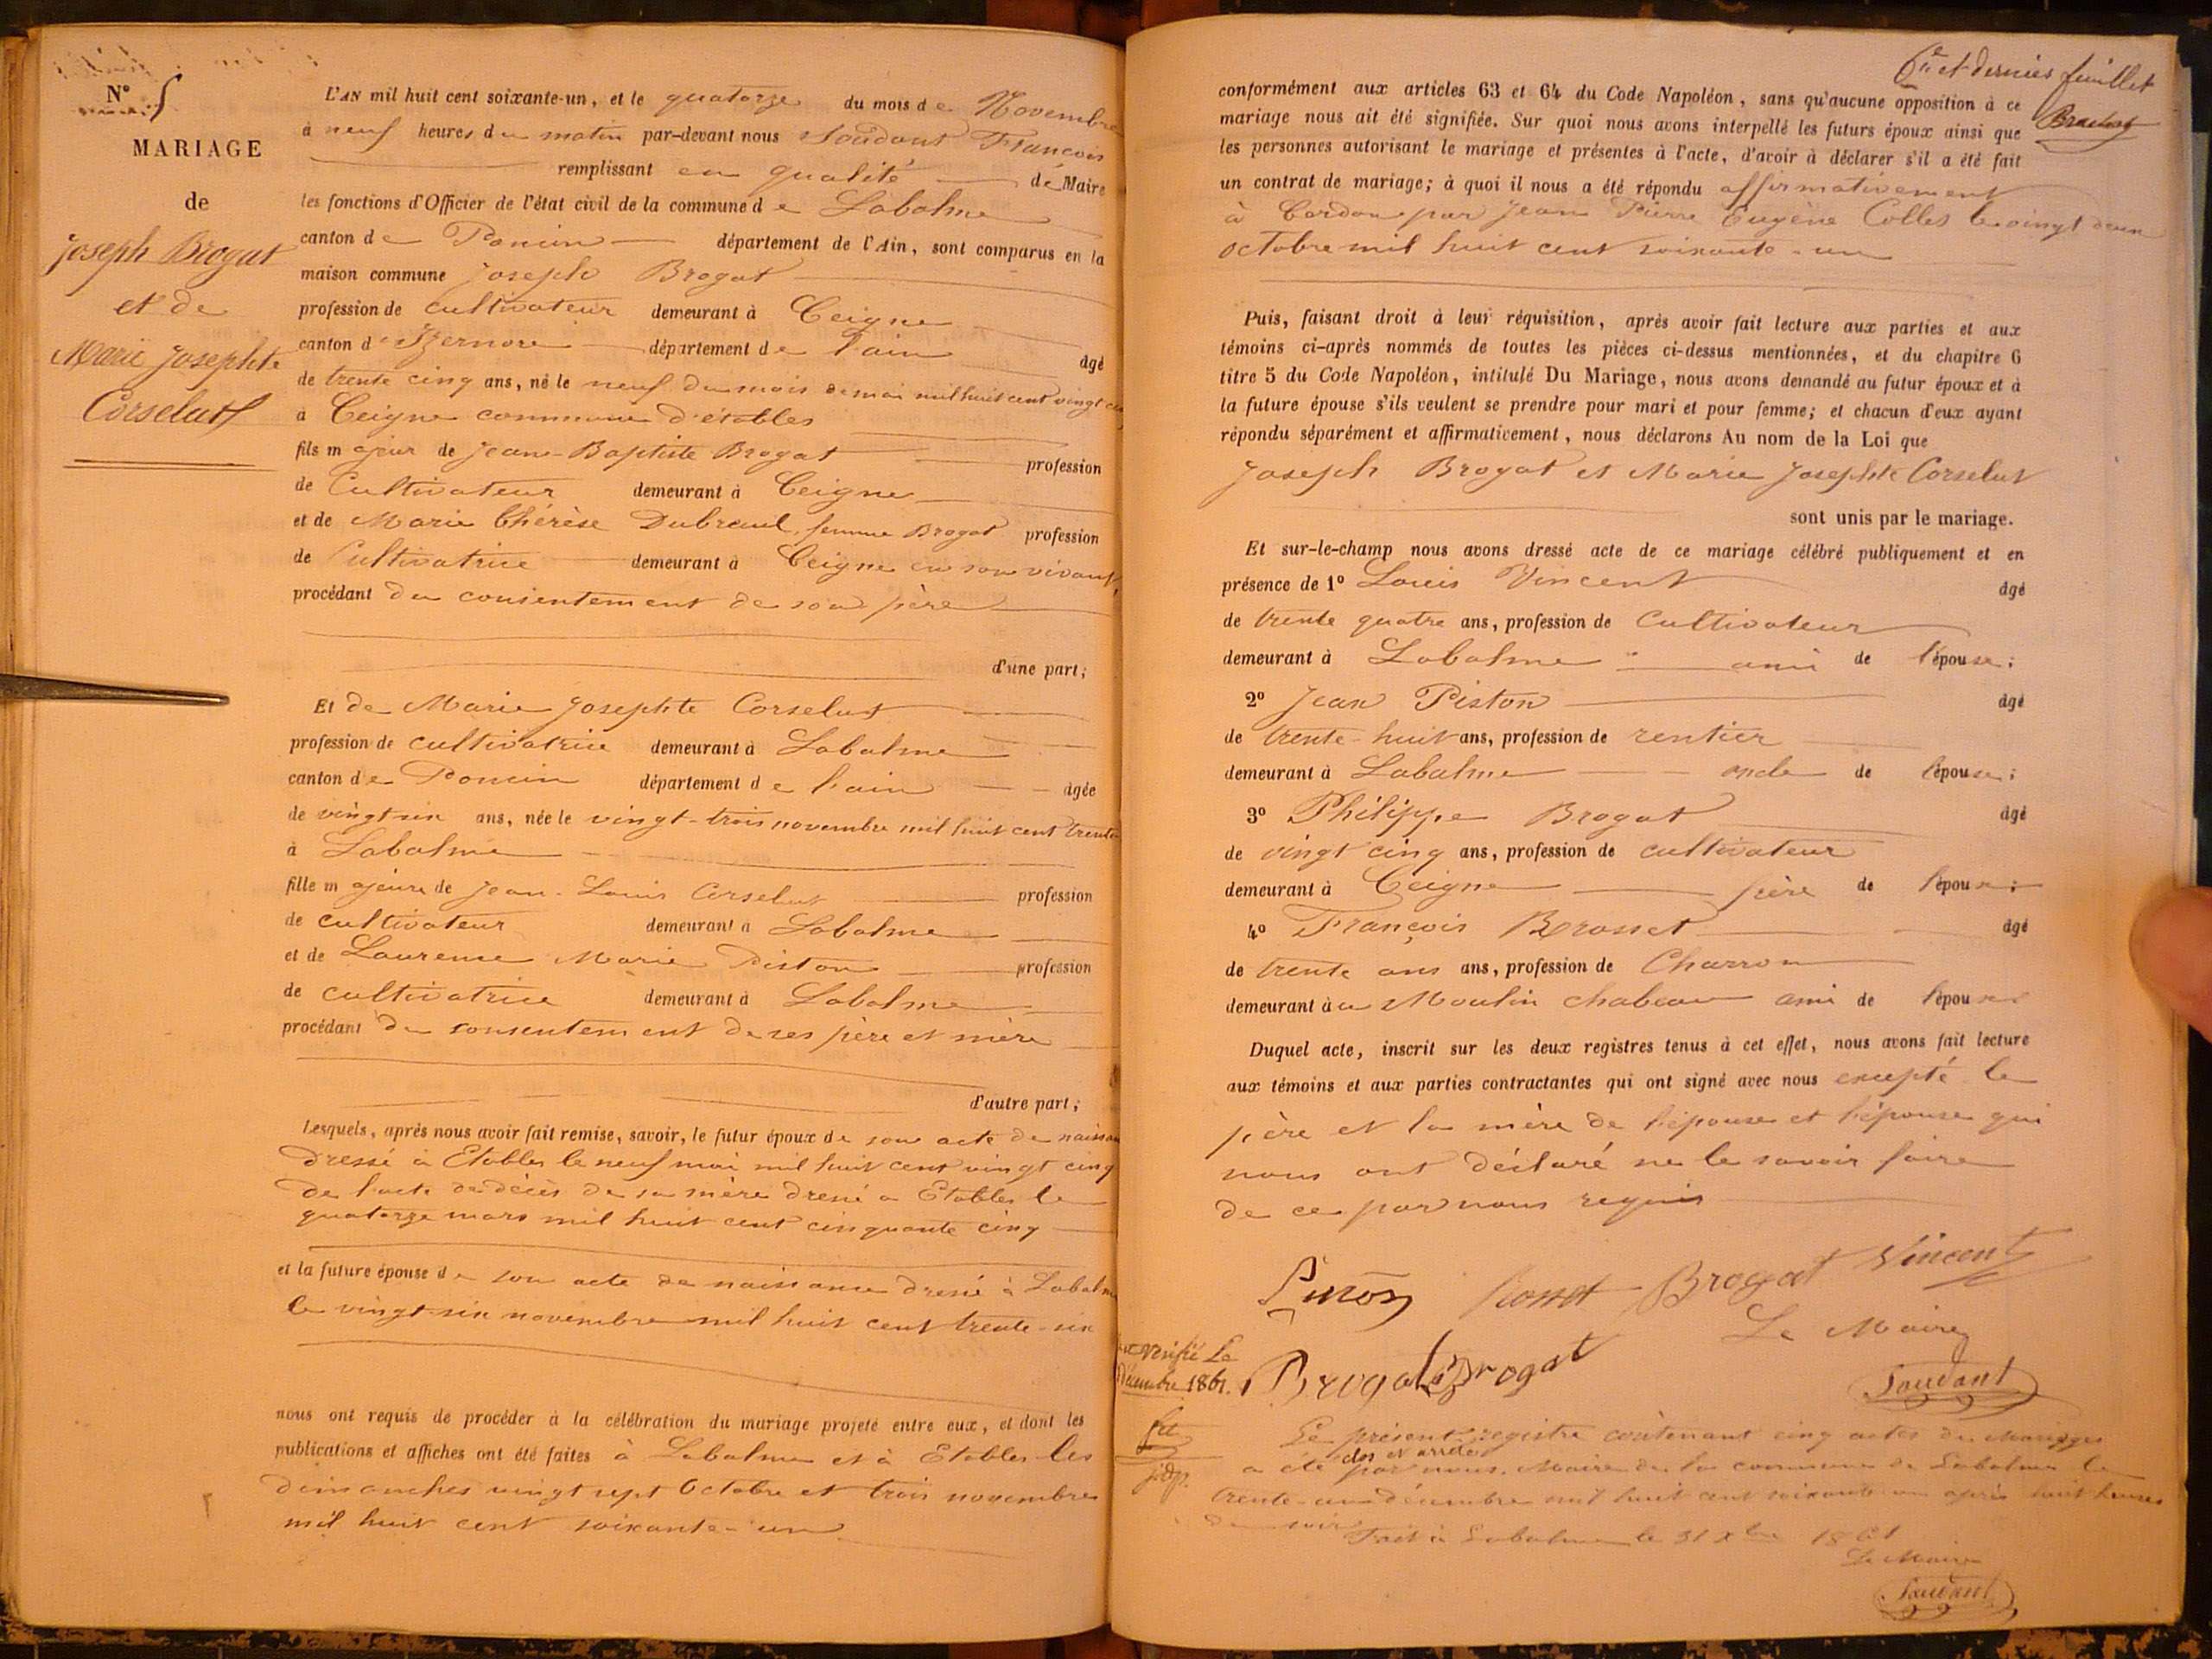 N° 5
MARIAGE
de
Joseph Brogat
et de
Marie Josephte
Corselut
L'AN mil huit cent soixante-un, et le quatorze du mois de Novembre
à neuf heures du matin par-devant nous Soudant François
remplissant en qualité de Maire
les fonctions d'Officier de l'état civil de la commune de Labalme
canton de Poncin département de l'Ain, sont comparus en la
maison commune Joseph Brogat
profession de cultivateur demeurant à Ceigne
canton d'Izernore département de l'ain âgé
de trente cinq ans, né le neuf du mois de mai mil huit cent vingt
à Ceigne commune d'étables
fils majeur de Jean-Baptiste Brogat profession
de Cultivateur demeurant à Ceigne
et de Marie Thérèse Dubreuil femme Brogat profession
de Cultivatrice demeurant à Ceigne en son vivant,
procédant du consentement de son père
d'une part;
Et de Marie Josephte Corselut
profession de cultivatrice demeurant à Labalme
canton de Poncin département de l'ain âgée
de vingt six ans, née le vingt-trois novembre mil huit cent trente
à Labalme
fille majeure de Jean-Louis Corselut profession
de cultivateur demeurant à Labalme
et de Laurence Marie Piston profession
de cultivatrice demeurant à Labalme
procédant du consentement de ses père et mère
d'autre part;
Lesquels, après nous avoir fait remise, savoir, le futur époux de son acte de naissan
dressé à Etables le neuf mai mil huit cent vingt cinq
de l'acte de décès de sa mère dressé a Etables le
quatorze mars mil huit cent cinquante cinq
et la future épouse de son acte de naissance dressé à Labalme
le vingt-six novembre mil huit cent trente-six
nous ont requis de procéder à la célébration du mariage projeté entre eux, et dont les
publications et affiches ont été faites à Labalme et à Etables les
dimanches vingt sept Octobre et trois novembre
mil huit cent soixante-un
6e et dernier feuillet
conformément aux articles 63 et 64 du Code Napoléon, sans qu'aucune opposition à ce
mariage nous ait été signifiée. Sur quoi nous avons interpellé les futurs époux ainsi que
les personnes autorisant le mariage et présentes à l'acte, d'avoir à déclarer s'il a été fait
un contrat de mariage; à quoi il nous a été répondu affirmativement
à Cerdon par Jean Pierre Eugène Collet le vingt deux
octobre mil huit cent soixante-un
Puis, faisant droit à leur réquisition, après avoir fait lecture aux parties et aux
témoins ci-après nommés de toutes les pièces ci-dessus mentionnées, et du chapitre 6
titre 5 du Code Napoléon, intitulé Du Mariage, nous avons demandé au futur époux et à
la future épouse s'ils veulent se prendre pour mari et pour femme; et chacun d'eux ayant
répondu séparément et affirmativement, nous déclarons Au nom de la Loi que
Joseph Brogat et Marie Josephte Corselut
sont unis par le mariage.
Et sur-le-champ nous avons dressé acte de ce mariage célébré publiquement et en
présence de 1° Louis Vincent âgé
de trente quatre ans, profession de Cultivateur
demeurant à Labalme ami de l'épouse;
2° Jean Piston âgé
de trente-huit ans, profession de rentier
demeurant à Labalme oncle de l'épouse;
3° Philippe Brogat âgé
de vingt cinq ans, profession de cultivateur
demeurant à Ceigne frère de l'époux;
4° François Brosset âgé
de trente ans ans, profession de Charron
demeurant à au Moulin chabeau ami de l'époux
Duquel acte, inscrit sur les deux registres tenus à cet effet, nous avons fait lecture
aux témoins et aux parties contractantes qui ont signé avec nous excepté le
père et la mère de l'épouse et l'épouse qui
nous ont déclaré ne le savoir faire
de ce par nous requis
Piston Rosset Brogat Vincent
Le Maire
Brogat Brogat
Soudant
Vérifié Le
Décembre 1861.
Le présent registre contenant cinq actes de Mariages
a été clos et arrêté par nous, Maire de la commune de Labalme le
trente-un décembre mil huit cent soixante un après huit heures
du soir
Fait à Labalme le 31 Xbre 1861
Le Maire
Soudant